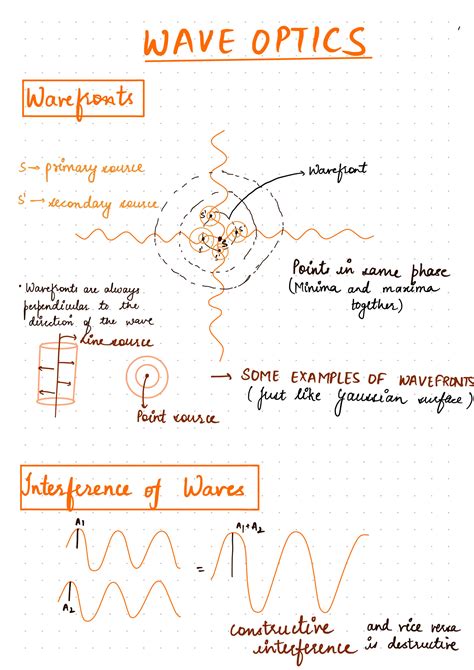 WAVE OPTICS
Wavefronts
S → primary source
S' → secondary source
Wavefront
S'
S'
S'
S'
S
Points in same phase
(Minima and maxima
together)
• Wavefronts are always
perpendicular to the
direction of the wave
Line source
Point source
→ SOME EXAMPLES OF WAVEFRONTS
(just like Gaussian surface)
Interference of Waves
A1
A2
=
A1+A2
constructive
interference
and vice versa
is destructive